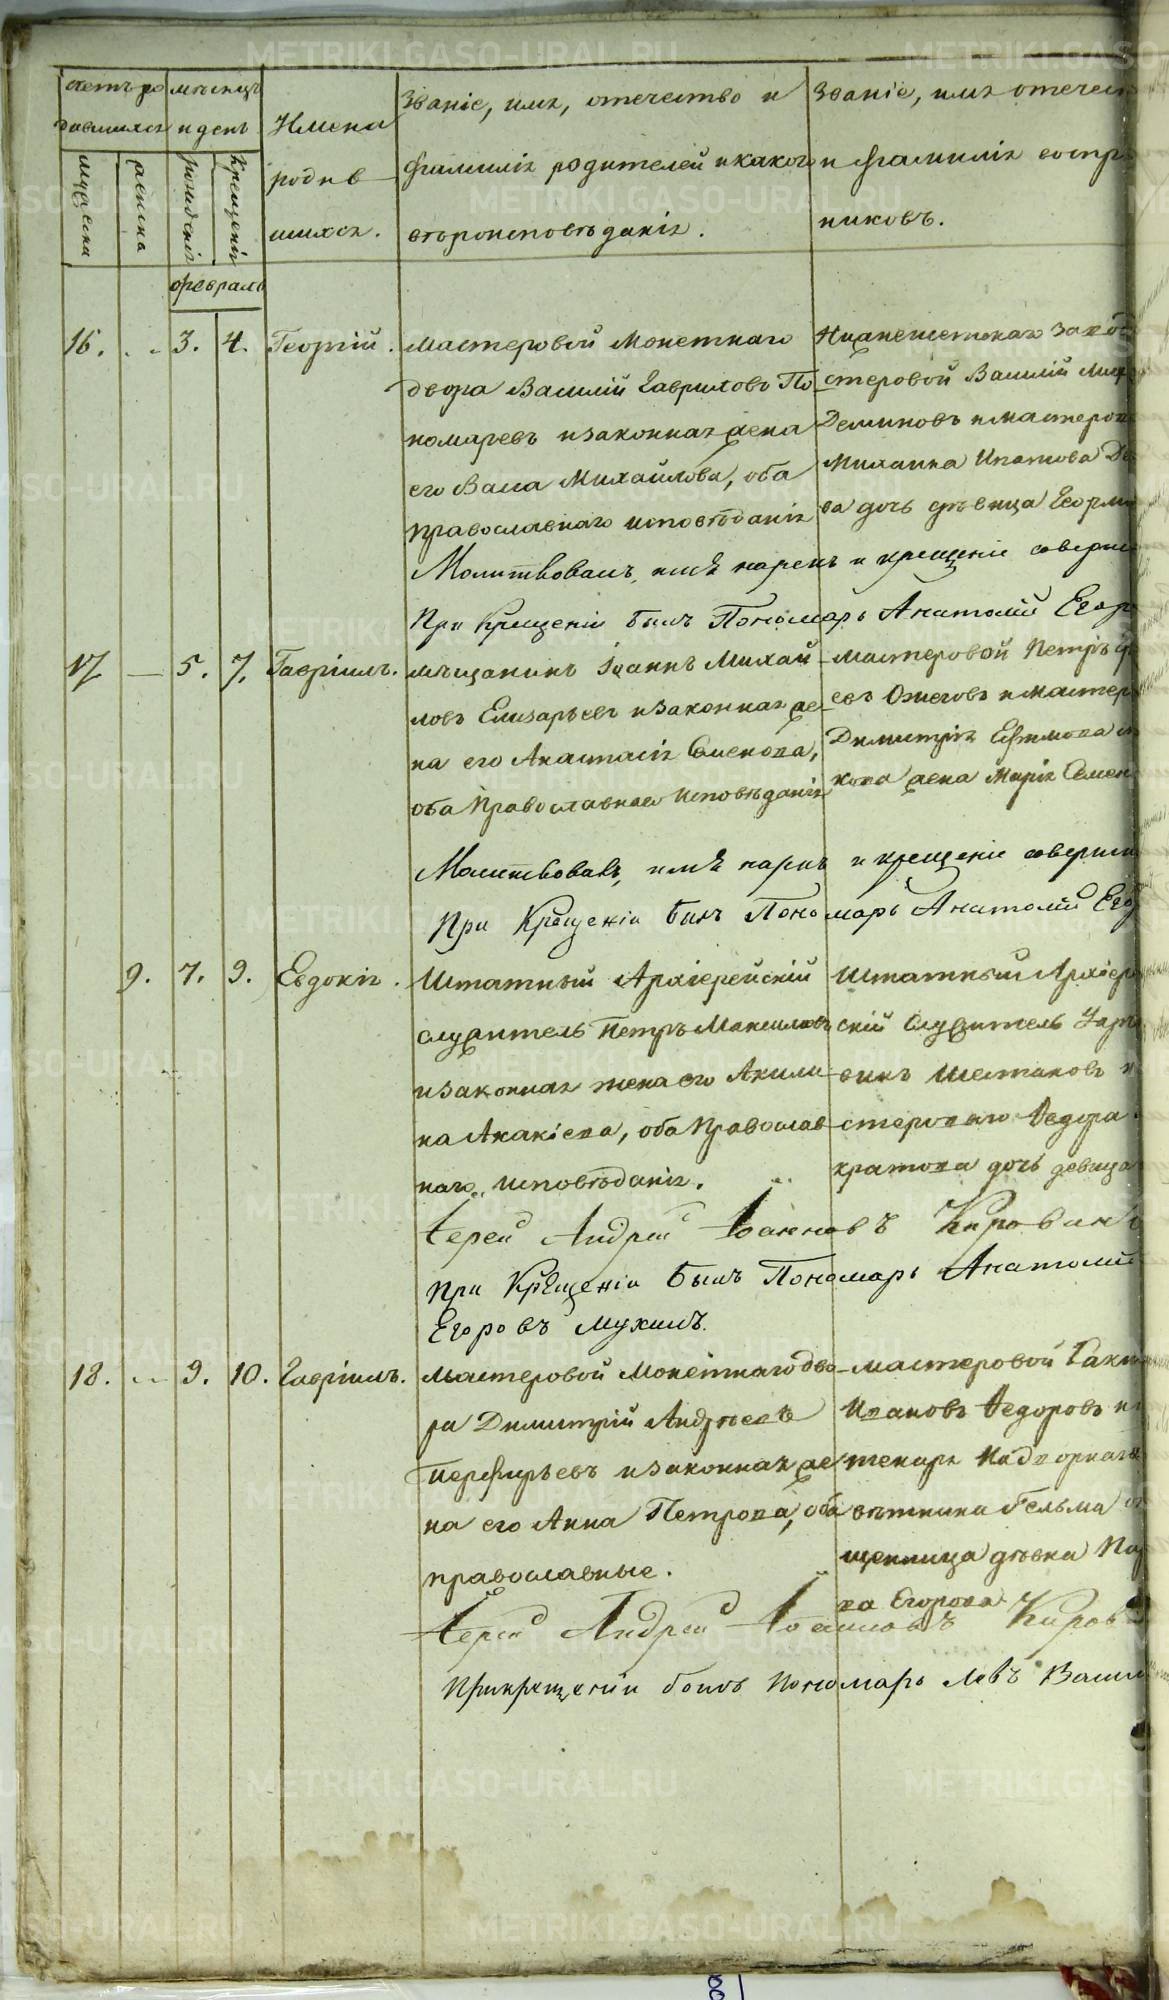 счетъ ро мѣсяцъ
дившихся и день
мужеска
женска
рожденія
крещенія
Имена
родив
шихся.
Званіе, имя, отечество и
фамилія родителей и какого
вѣроисповѣданія.
Званіе, имя отечест
и фамилія воспр
никовъ.
февраль
16. 3. 4. Георгій.
Мастеровой Монетнаго
двора Василій Гавриловъ По
номаревъ и законная жена
его Васса Михайлова, оба
православнаго исповѣданія
заво
стеровой Василій Мих
Деминовъ и мастеров
Михаила Ипатова
ва дочь дѣвица
Молитвовалъ, имя нарекъ и крещеніе соверши
При Крещеніи былъ Пономарь Анатолій Егор
17 5. 7. Гавріилъ.
мѣщанинъ Іоаннъ Михай
ловъ Елизарьевъ и законная же
на его Анастасія Семенова,
оба Православнаго исповѣданія
мастеровой Петръ
евъ Ожеговъ и мастер
Димитрія Ефимова
кова жена Марія Семен
Молитвовалъ, имя нарекъ и крещеніе соверши
При Крещеніи былъ Пономарь Анатолій Его
9. 7. 9. Евдокія.
Штатный Архіерейскій
служитель Петръ Максимовъ
и законная жена его Акили
на Акакіева, оба Православ
наго исповѣданія.
Штатный Архіере
скій служитель
винъ Шестаковъ и
стероваго Ѳедора
кратова дочь девица
Іерей Андрей Іоанновъ Кировин
При Крещеніи былъ Пономарь Анатолій
Егоровъ Мухинъ.
18. 9. 10. Гавріилъ.
Мастеровой Монетнаго дво
ра Димитрій Андреевъ
Перфирьевъ и законная же
на его Анна Петрова, оба
православные.
мастеровой
Ивановъ Ѳедоровъ и
текаря Надворнаго
вѣтника Гельма
щенница дѣвка
ва Егорова
Іерей Андрей Іоанновъ Киров
При крещеніи былъ Пономарь Левъ Васил
METRIKI.GASO-URAL.RU